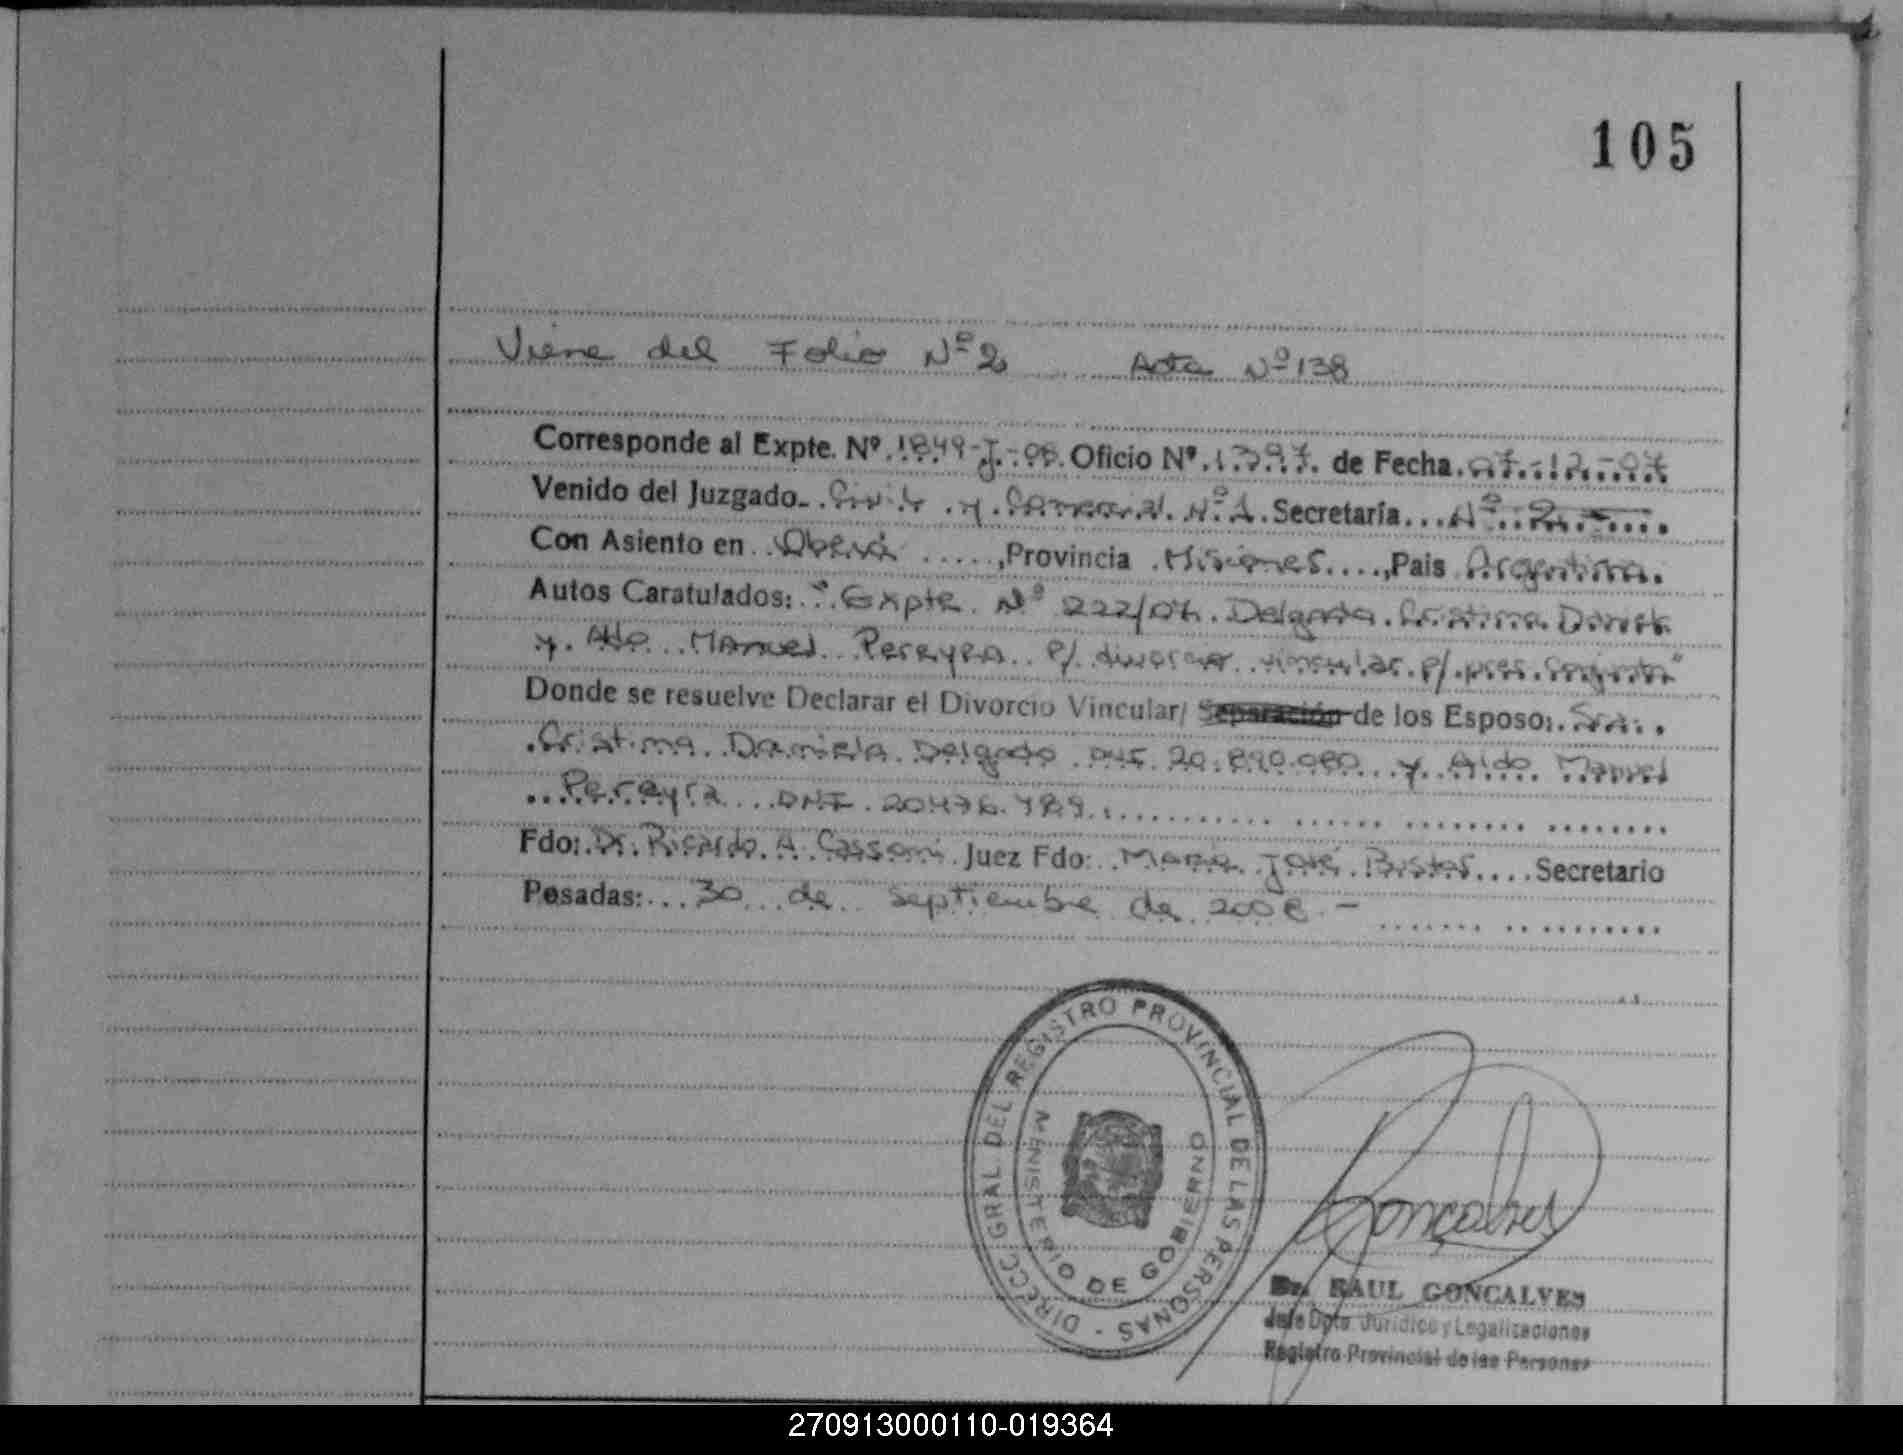 105
Viene del Folio Nº 2 Acta Nº 138
Corresponde al Expte. Nº 1849-J-08 Oficio Nº 1397 de Fecha 07-12-07
Venido del Juzgado Civil y Comercial Nº 1 Secretaría Nº 2
Con Asiento en Oberá, Provincia Misiones, Pais Argentina.
Autos Caratulados: "Expte Nº 222/07 Delgado Cristina Daniela
y Aldo Manuel Pereyra p/ divorcio vincular p/ pres. conjunta"
Donde se resuelve Declarar el Divorcio Vincular/ Separación de los Esposo: Sra.
Cristina Daniela Delgado DNI 20.890.080 y Aldo Manuel
Pereyra DNI 20.476.789
Fdo: Dr. Ricardo A. Cassoni Juez Fdo: María José Bustos Secretario
Posadas: 30 de Septiembre de 2008 -
DIRECC GRAL DEL REGISTRO PROVINCIAL DE LAS PERSONAS -
MINISTERIO DE GOBIERNO
Gonçalves
Dr. RAUL GONCALVES
Jefe Dpto. Jurídico y Legalizaciones
Registro Provincial de las Personas
270913000110-019364